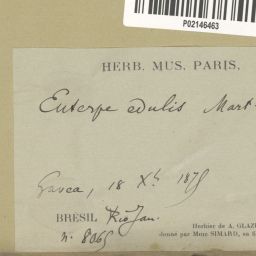 P02146463
HERB. MUS. PARIS.
Euterpe edulis Mart.
Gavea, 18 Xb 1875
BRESIL Rio Jan.
n. 8065
Herbier de A. GLAZI
donné par Mme SIMARD, sa